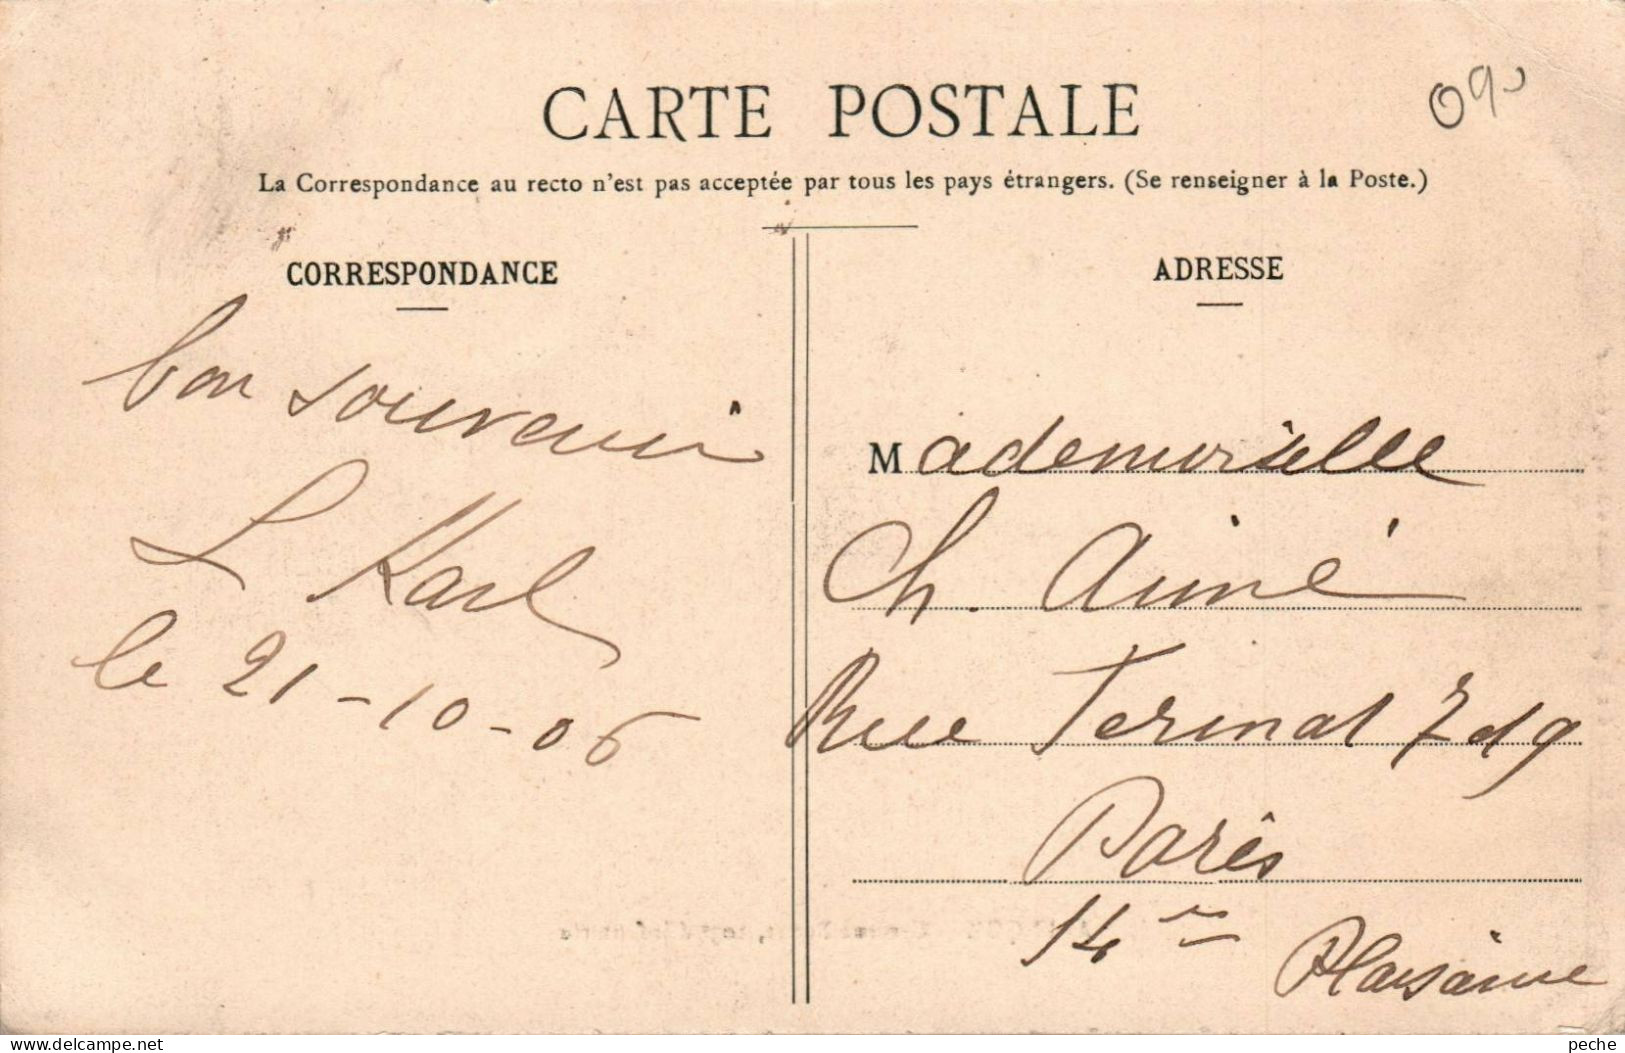 CARTE POSTALE
La Correspondance au recto n'est pas acceptée par tous les pays étrangers. (Se renseigner à la Poste.)
CORRESPONDANCE
bon souvenir
L Karl
le 21-10-06
ADRESSE
Mademoiselle
Ch. Aimé
Rue
Paris
14
Plaisance
www.delcampe.net
peche